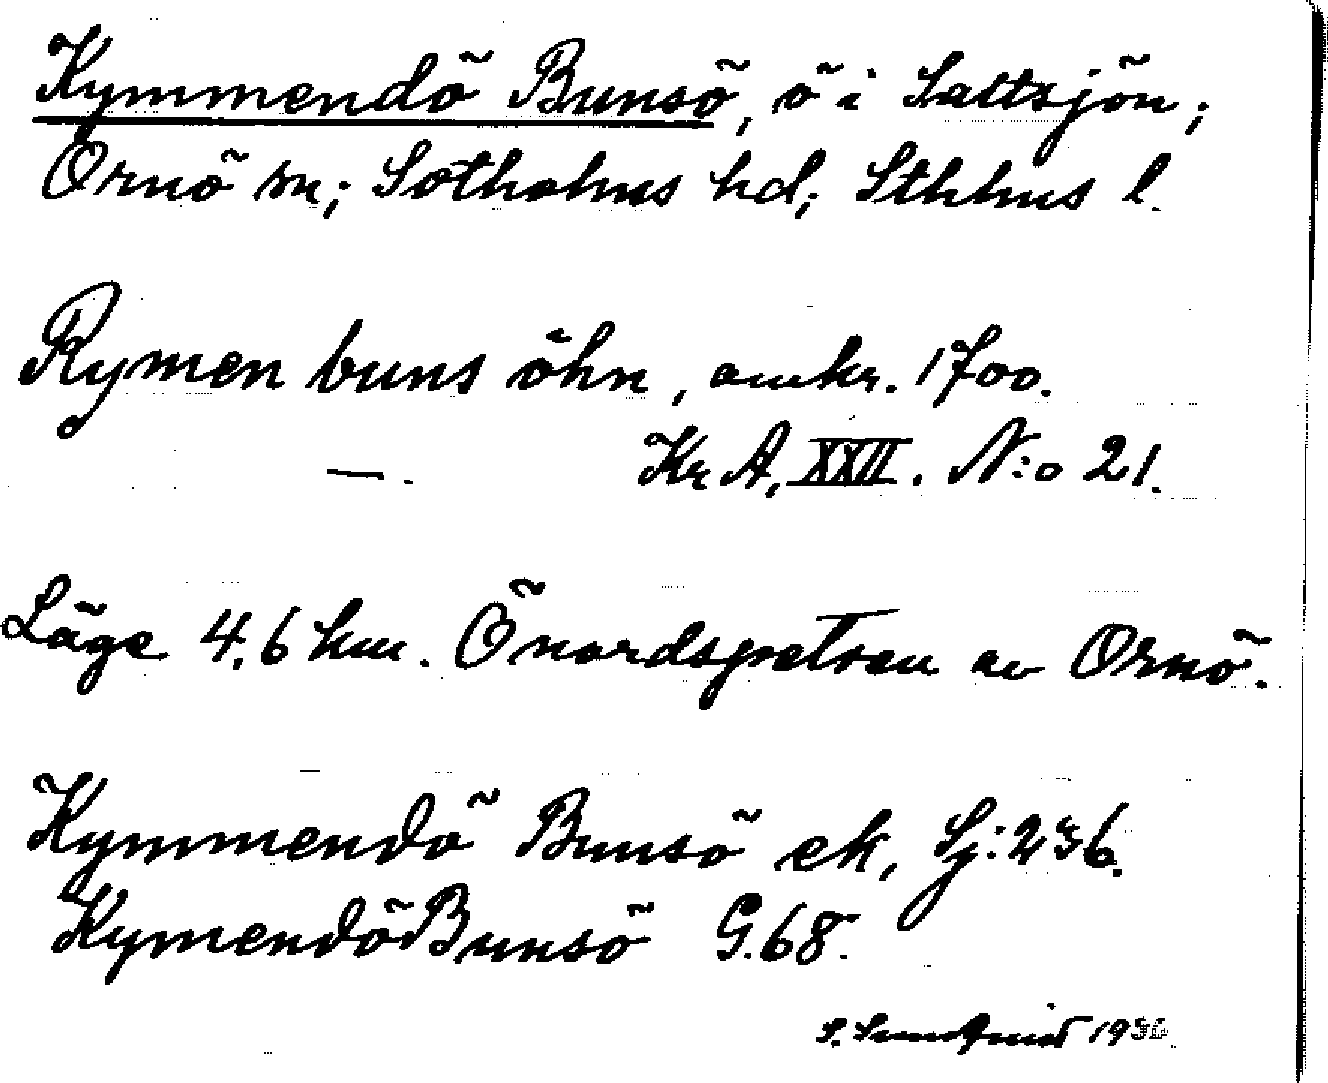 Kymmendö Bunsö, ö i Saltsjön;
Ornö sn; Sotholms hd; Sthlms l.
Kymen buns öhn, omkr. 1700.
—. Kr A, XXII. N:o 21.
Läge 4,6 km. Ö nordspetsen av Ornö.
Kymmendö Bunsö ek, Sj: 236.
Kymendö Bunsö G. 68.
S. 19